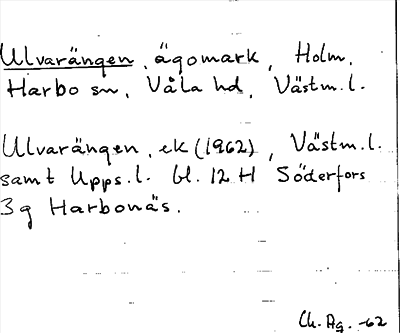 Ulvarängen, ägomark, Holm,
Harbo sn, Våla hd, Västm. l.
Ulvarängen, ek (1962), Västm. l.
samt Upps. l. bl. 12 H Söderfors
3 g Harbonäs.
Ch. Ag. -62